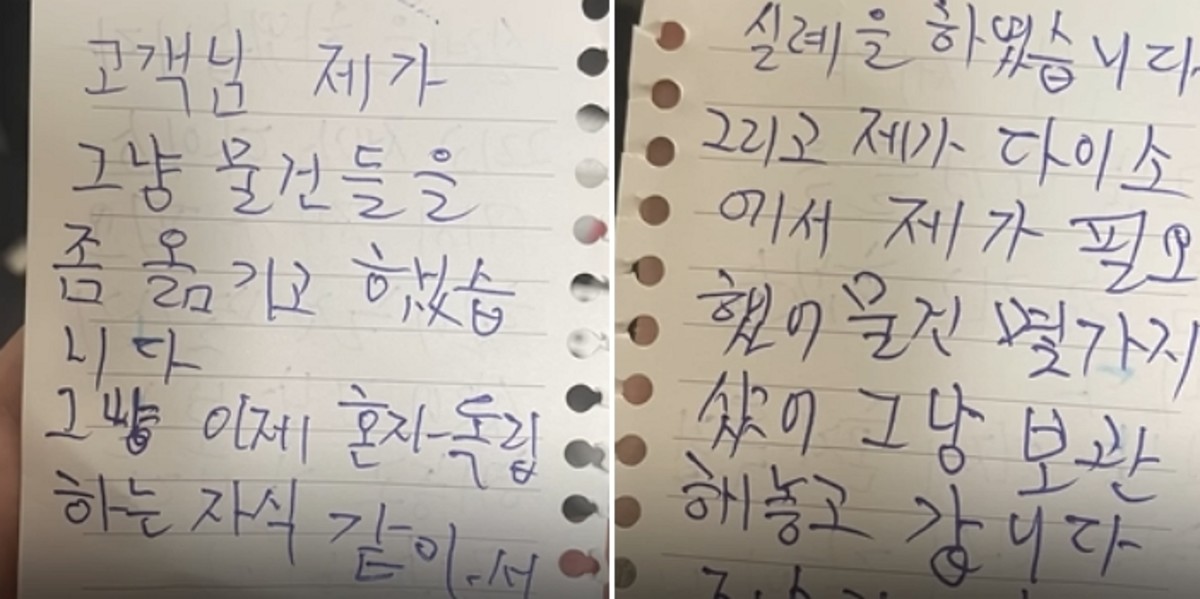 고객님 제가
그냥 물건들을
좀 옮기고 했습
니다
그냥 이제 혼자 독립
하는 자식 같이.서
실례을 하였습니다
그리고 제가 다이소
에서 제가 필요
했어 물건 몇가지
샀어 그냥 보관
해놓고 갑니다